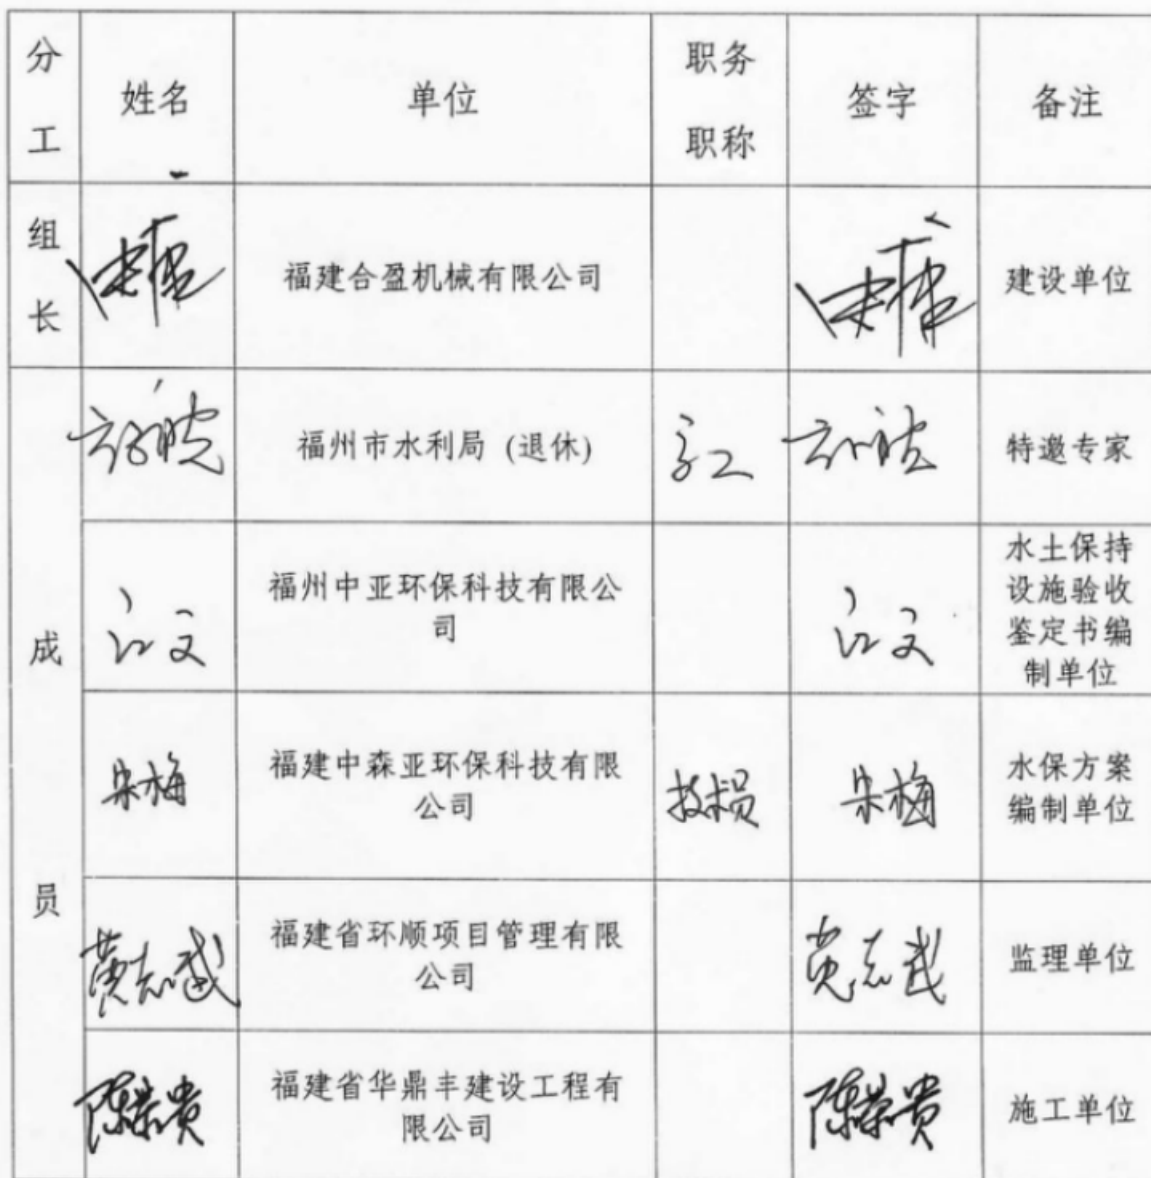 分工
姓名
单位
职务
职称
签字
备注
组长
福建合盈机械有限公司
建设单位
成员
福州市水利局（退休）
高工
特邀专家
江文
福州中亚环保科技有限公
司
江文
水土保持
设施验收
鉴定书编
制单位
朱梅
福建中森亚环保科技有限
公司
技术员
朱梅
水保方案
编制单位
黄志武
福建省环顺项目管理有限
公司
黄志武
监理单位
陈荣贵
福建省华鼎丰建设工程有
限公司
陈荣贵
施工单位